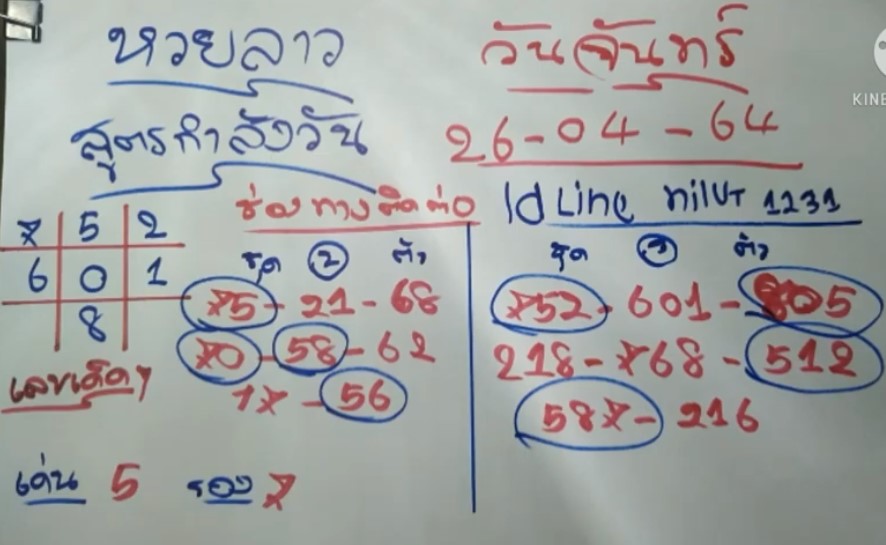 หวยลาว วันจันทร์
สูตรกำลังวัน 26-04-64
ช่องทางติดต่อ Id Line nilUT 1231
7 5 2
6 0 1
8
ชุด 2 ตัว
75-21-68
70-58-62
17-56
ชุด 3 ตัว
752-601-805
218-768-512
587-216
เลขเด็ดๆ
เด่น 5 รอง 7
KINE